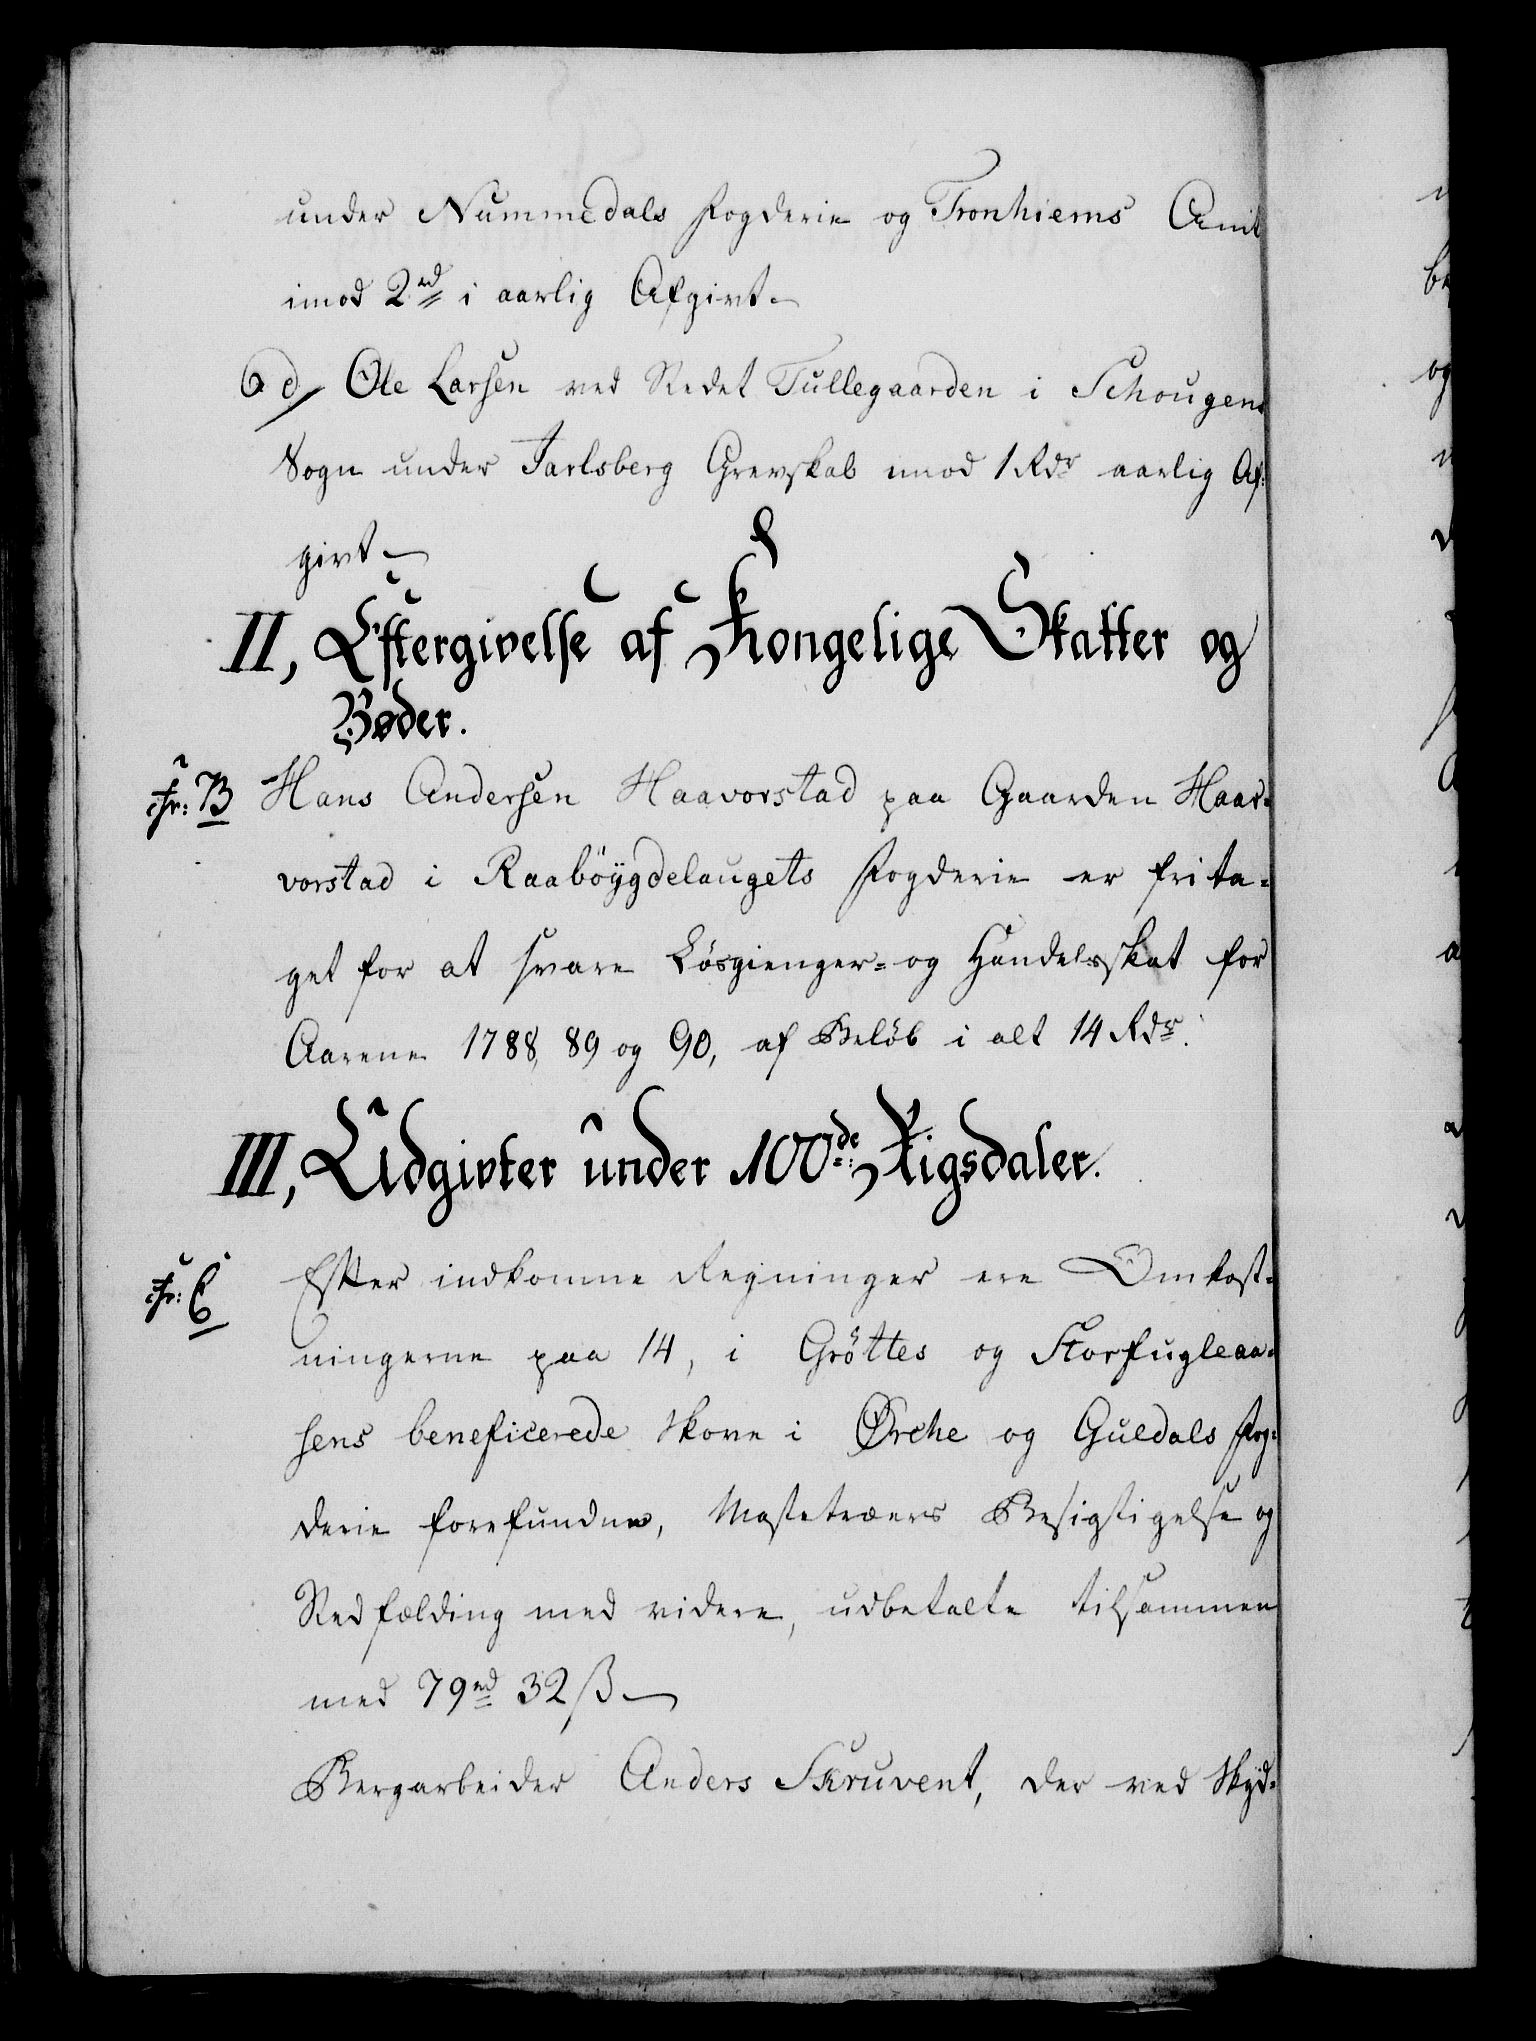 under Nummedals Fogderie og Tronhiems Amt
imod 2 rd i aarlig Afgivt.
6 d/ Ole Larsen ved Stedet Tullegaarden i Schougens
Sogn under Jarlsberg Grevskab imod 1 Rdr aarlig Af-
givt
II, Eftergivelse af Kongelige Skatter og
Bøder.
Fr: B Hans Andersen Haavorstad paa Gaarden Haa-
vorstad i Raaböÿgdelaugets Fogderie er frita-
get for at svare Lösgienger- og Handelsskat for
Aarene 1788, 89 og 90, af Belöb i alt 14 Rdr.
III, Udgivter under 100de Rigsdaler.
Fr: C Efter indkomne Regninger ere Omkost-
ningerne paa 14, i Gröttes og Storfugleaa-
sens beneficerede Skove i Ørche og Guldals Fog-
derie forefundne, Mastetræers Besigtigelse og
Nedfælding med videre, udbetalte tilsammen
med 79 rd 32 ß
Bergarbeider Anders Skruvent, der ved Skyd-